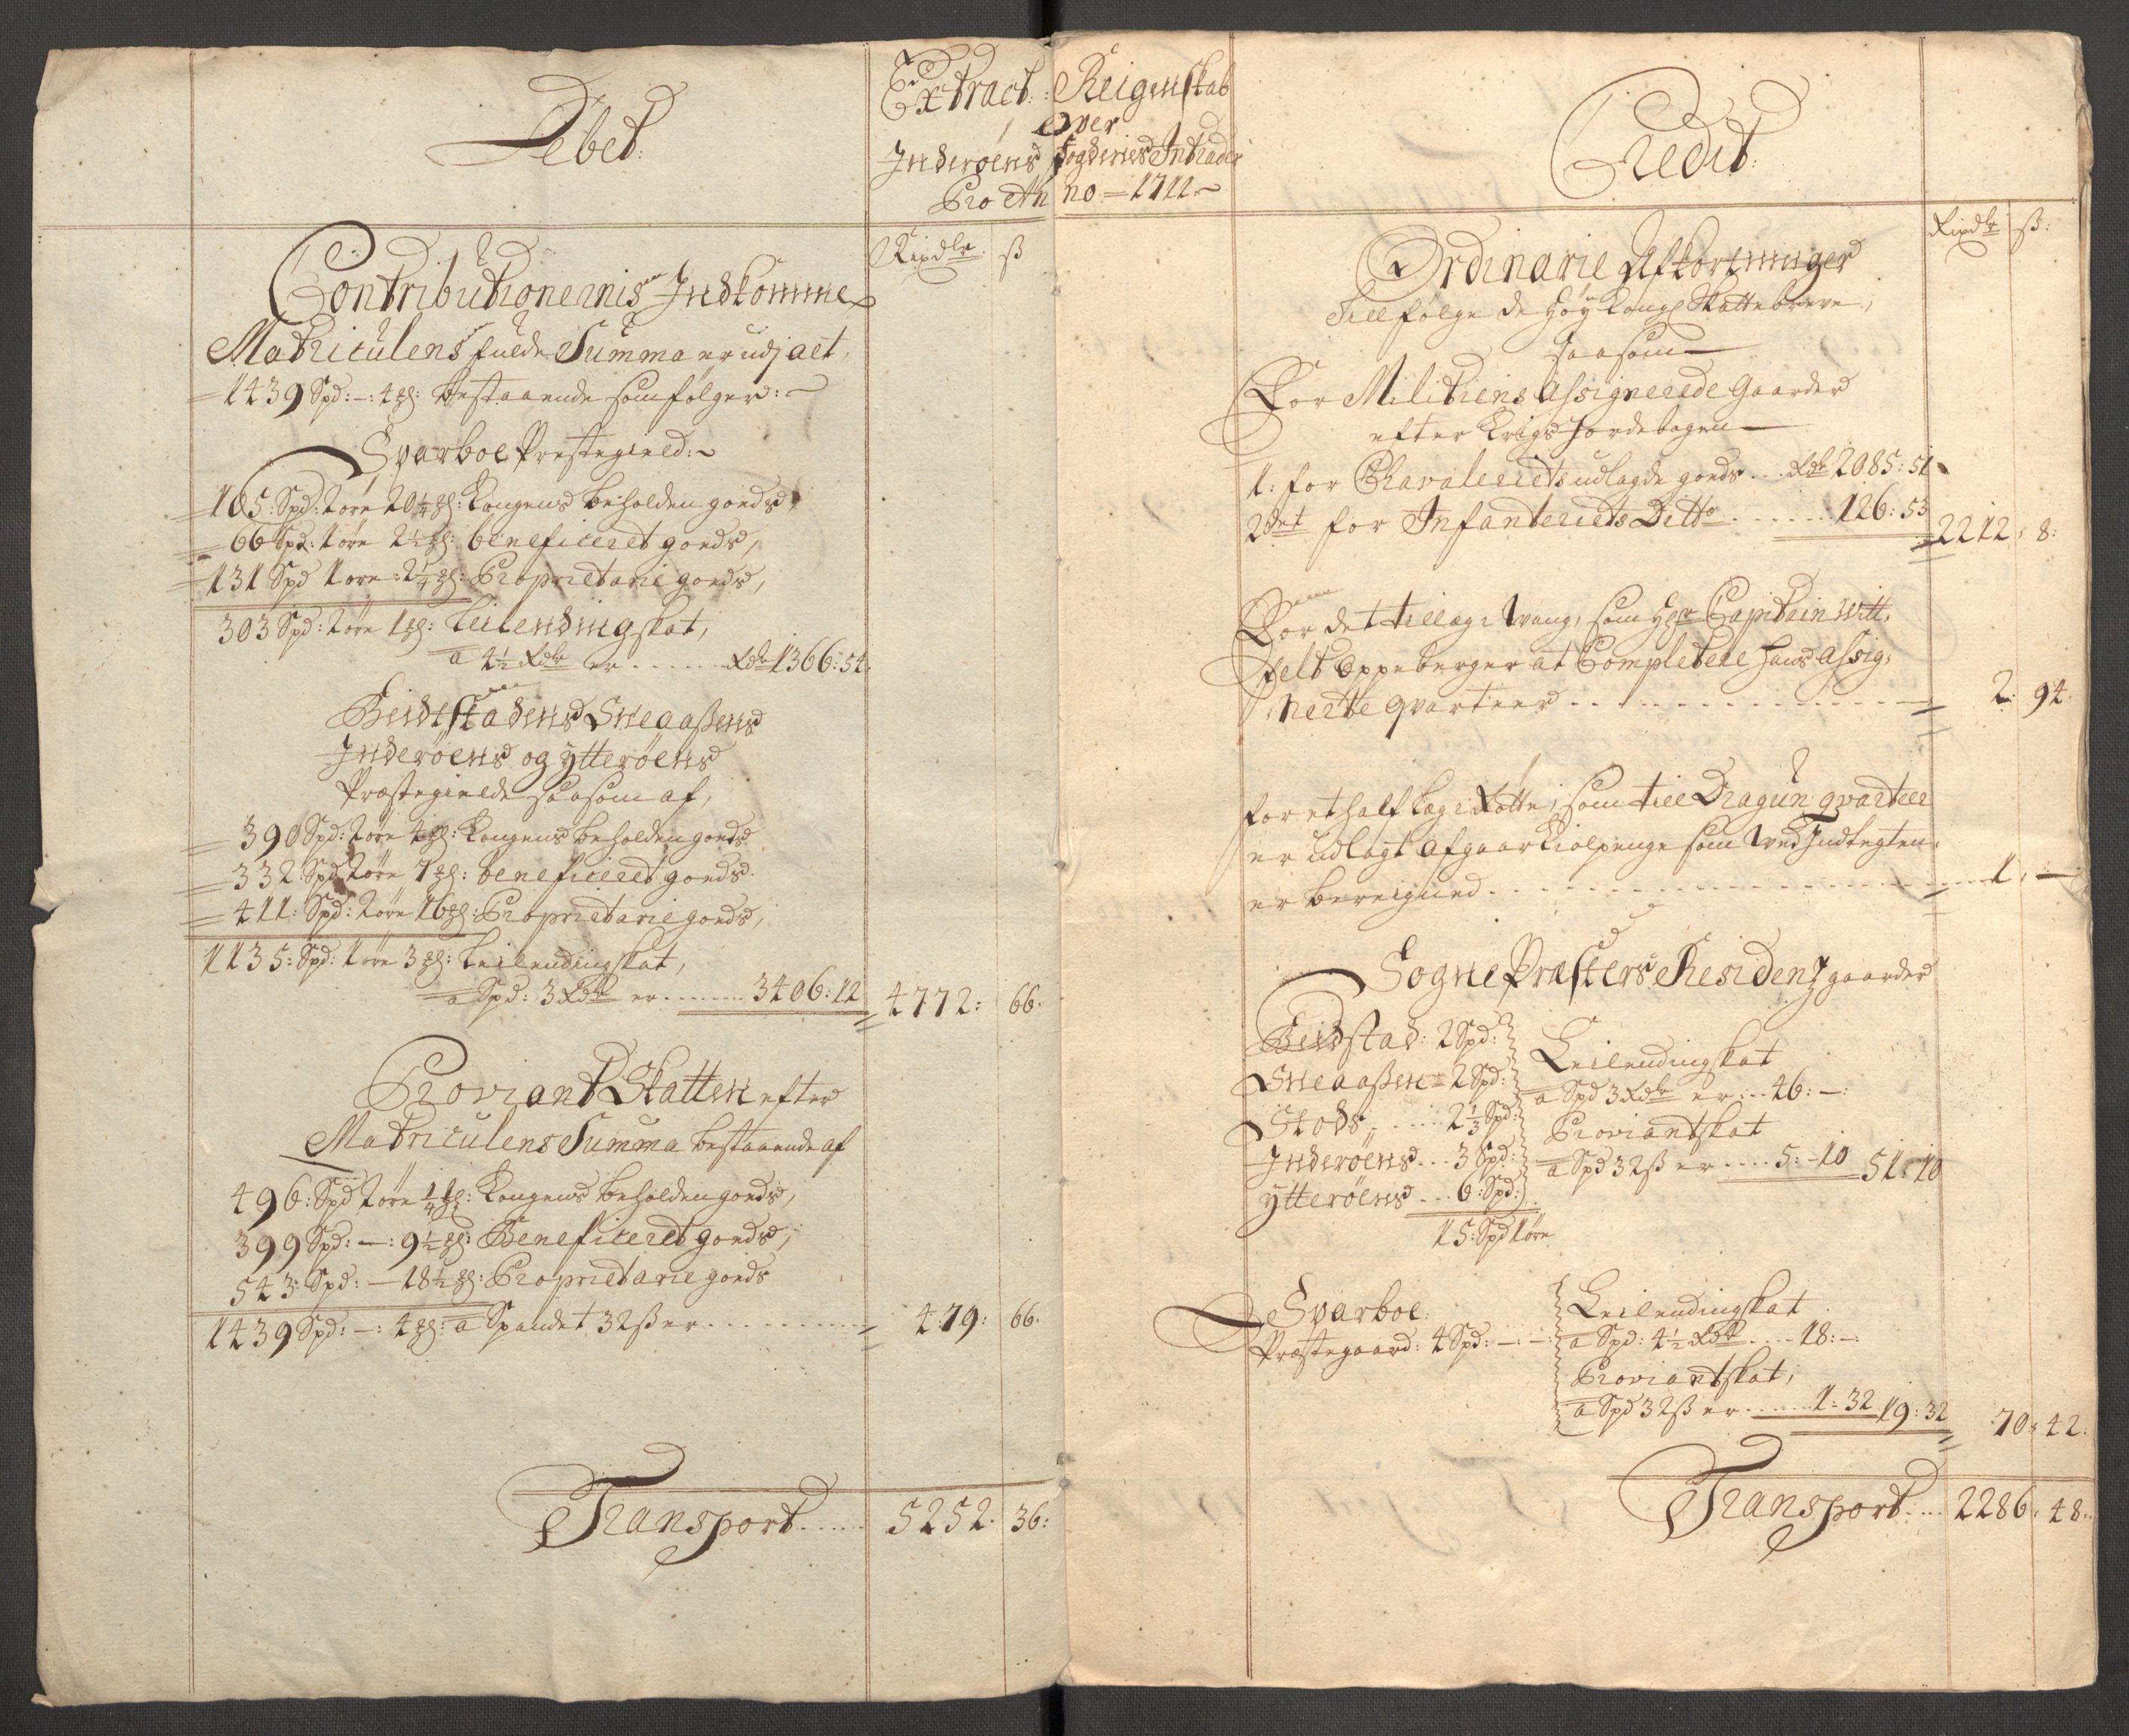 Debet:
Extract: Reigenskab
over
Inderøens fogderies Intrader
Pro Anno 1711
Rixdlr: ß
Contributionernis Indkomme
Matriculens fulde Summa er udj alt,
1439 Spd: -: 4 ghl: bestaaende som følger:
Sparboe Prestegield:
105: Spd: 2 øre 20¼ ghl: Kongens beholden goeds,
66 Spd: 1 øre 2½ ghl: beneficeret goeds,
131 Spd 1 øre 2¼ ghl: Proprietarie goeds,
303 Spd: 2 øre 1 ghl: Leilendingskat,
a 4½ Rdr er ...... Rdr 1366: 54.
Beidstadens Sneaaßens
Inderøens og ytterøens
Præstegielde saasom af,
390 Spd: 2 øre 4 ghl: Kongens beholden goeds
332 Spd 2 øre 7 ghl: beneficeret goeds.
411: Spd: 2 øre 16 ghl: Proprietarie goeds,
1135: Spd: 1 øre 3 ghl: Leilendingskat,
a Spd: 3 Rdr er ....... 3406: 12 4772: 66.
Proviant Skatten efter
Matriculens Summa bestaaende af
496: Spd 2 øre ¼ ghl: Kongens beholden goeds,
399 Spd: -: 9½ ghl: Beneficeret goeds,
543: Spd: - 18½ ghl: Proprietarie goeds
1439 Spd: -: 4 ghl: a Spandet 32 ß er ......... 479: 66.
Transport ..... 5252. 36:
Credit:
Rixdlr ß:
Ordinarie Afkortninger
Till følge de høy Kongl Skattebreve,
saasom
For Militiens Assignerede Gaarder
efter Krigs Jordebogen
1: for Chavaleriets udlagde goeds ... Rdr 2085: 51
2det for Infanteriets Ditto ...... 126: 53 2212: 8:
For det tillæg i Wang, som Hr Capitain Witt,
felt oppeberger at Completere hans assig,
nerte qvarteer ............... 2: 94.
for et half læg i Rotte, som till Dragun qvarteer
er udlagt afgaar Kiolpenge som ved Indtegten
er bereigned ................ 1, -
Sogne Præsters Residentz gaarder
Beidstad: 2 Spd:
Sneaaßen - 2 Spd:
Stods ..... 2⅓ Spd:
Inderøens ... 3 Spd:
ytterøens ... 6: Spd:
15: Spd 1 øre
Leilendingskat
a Spd 3 Rdr er ... 46: -:
Proviantskat
a Spd 32 ß er .... 5: -10 51: 10
Sparboe:
Præstegaard: 4 Spd: -: -:
Leilendingskat
a Spd: 4½ Rdr .... 18: -:
Proviantskat,
a Spd 32 ß er ...... 1: 32 19: 32 70: 42:
Transport .... 2286: 48: